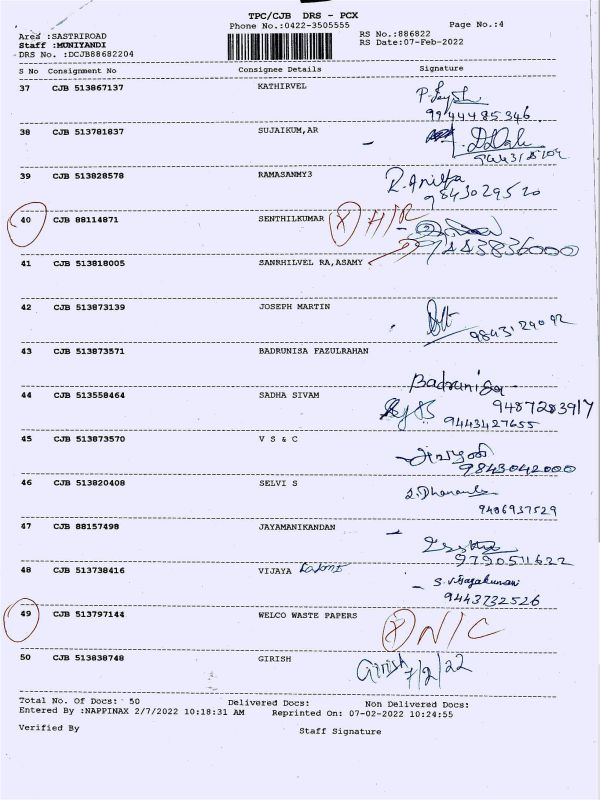 TPC/CJB DRS - PCX
Phone No.:0422-3505555
Page No.:4
Area :SASTRIROAD
RS No.:886822
Staff :MUNIYANDI
RS Date:07-Feb-2022
DRS No. :DCJB88682204
S No Consignment No Consignee Details Signature
37 CJB 513867137 KATHIRVEL
9944485346
38 CJB 513781837 SUJAIKUM,AR
39 CJB 513828578 RAMASANMY3 R. Anitha
9843029520
40 CJB 88114871 SENTHILKUMAR X H/R
9443836000
41 CJB 513818005 SANRHILVEL RA,ASAMY
42 CJB 513873139 JOSEPH MARTIN
9843129092
43 CJB 513873571 BADRUNISA FAZULRAHAN
Badrunisa
44 CJB 513558464 SADHA SIVAM 9487283917
9443427655
45 CJB 513873570 V S & C
9843042000
46 CJB 513820408 SELVI S
9486937529
47 CJB 88157498 JAYAMANIKANDAN
9790511622
48 CJB 513738416 VIJAYA
S. Vijayakumari
9443732526
49 CJB 513797144 WELCO WASTE PAPERS X N/C
50 CJB 513838748 GIRISH Girish 7/2/22
Total No. Of Docs: 50 Delivered Docs: Non Delivered Docs:
Entered By :NAPPINAX 2/7/2022 10:18:31 AM Reprinted On: 07-02-2022 10:24:55
Verified By
Staff Signature